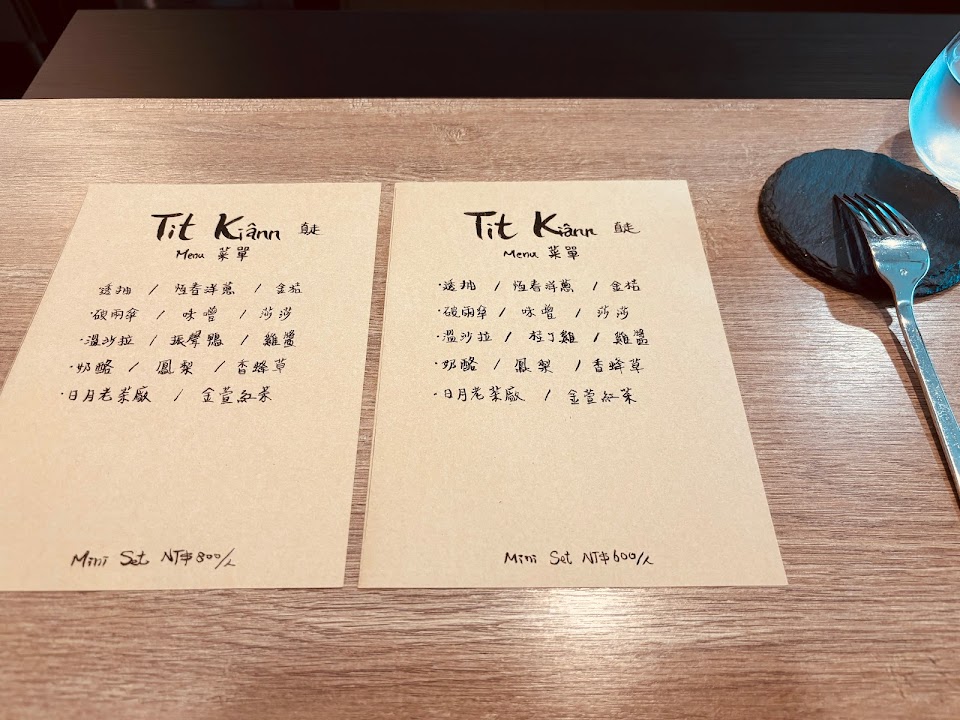 Tit Kiânn 直走
Menu 菜單
·透抽 / 恆春洋蔥 / 金桔
·破雨傘 / 味噌 / 莎莎
·溫沙拉 / 張聲鴨 / 雞醬
·奶酪 / 鳳梨 / 香蜂草
·日月老茶廠 / 金萱紅茶
Mini Set NT$800/人
Tit Kiânn 直走
Menu 菜單
·透抽 / 恆春洋蔥 / 金桔
·破雨傘 / 味噌 / 莎莎
·溫沙拉 / 桂丁雞 / 雞醬
·奶酪 / 鳳梨 / 香蜂草
·日月老茶廠 / 金萱紅茶
Mini Set NT$600/人